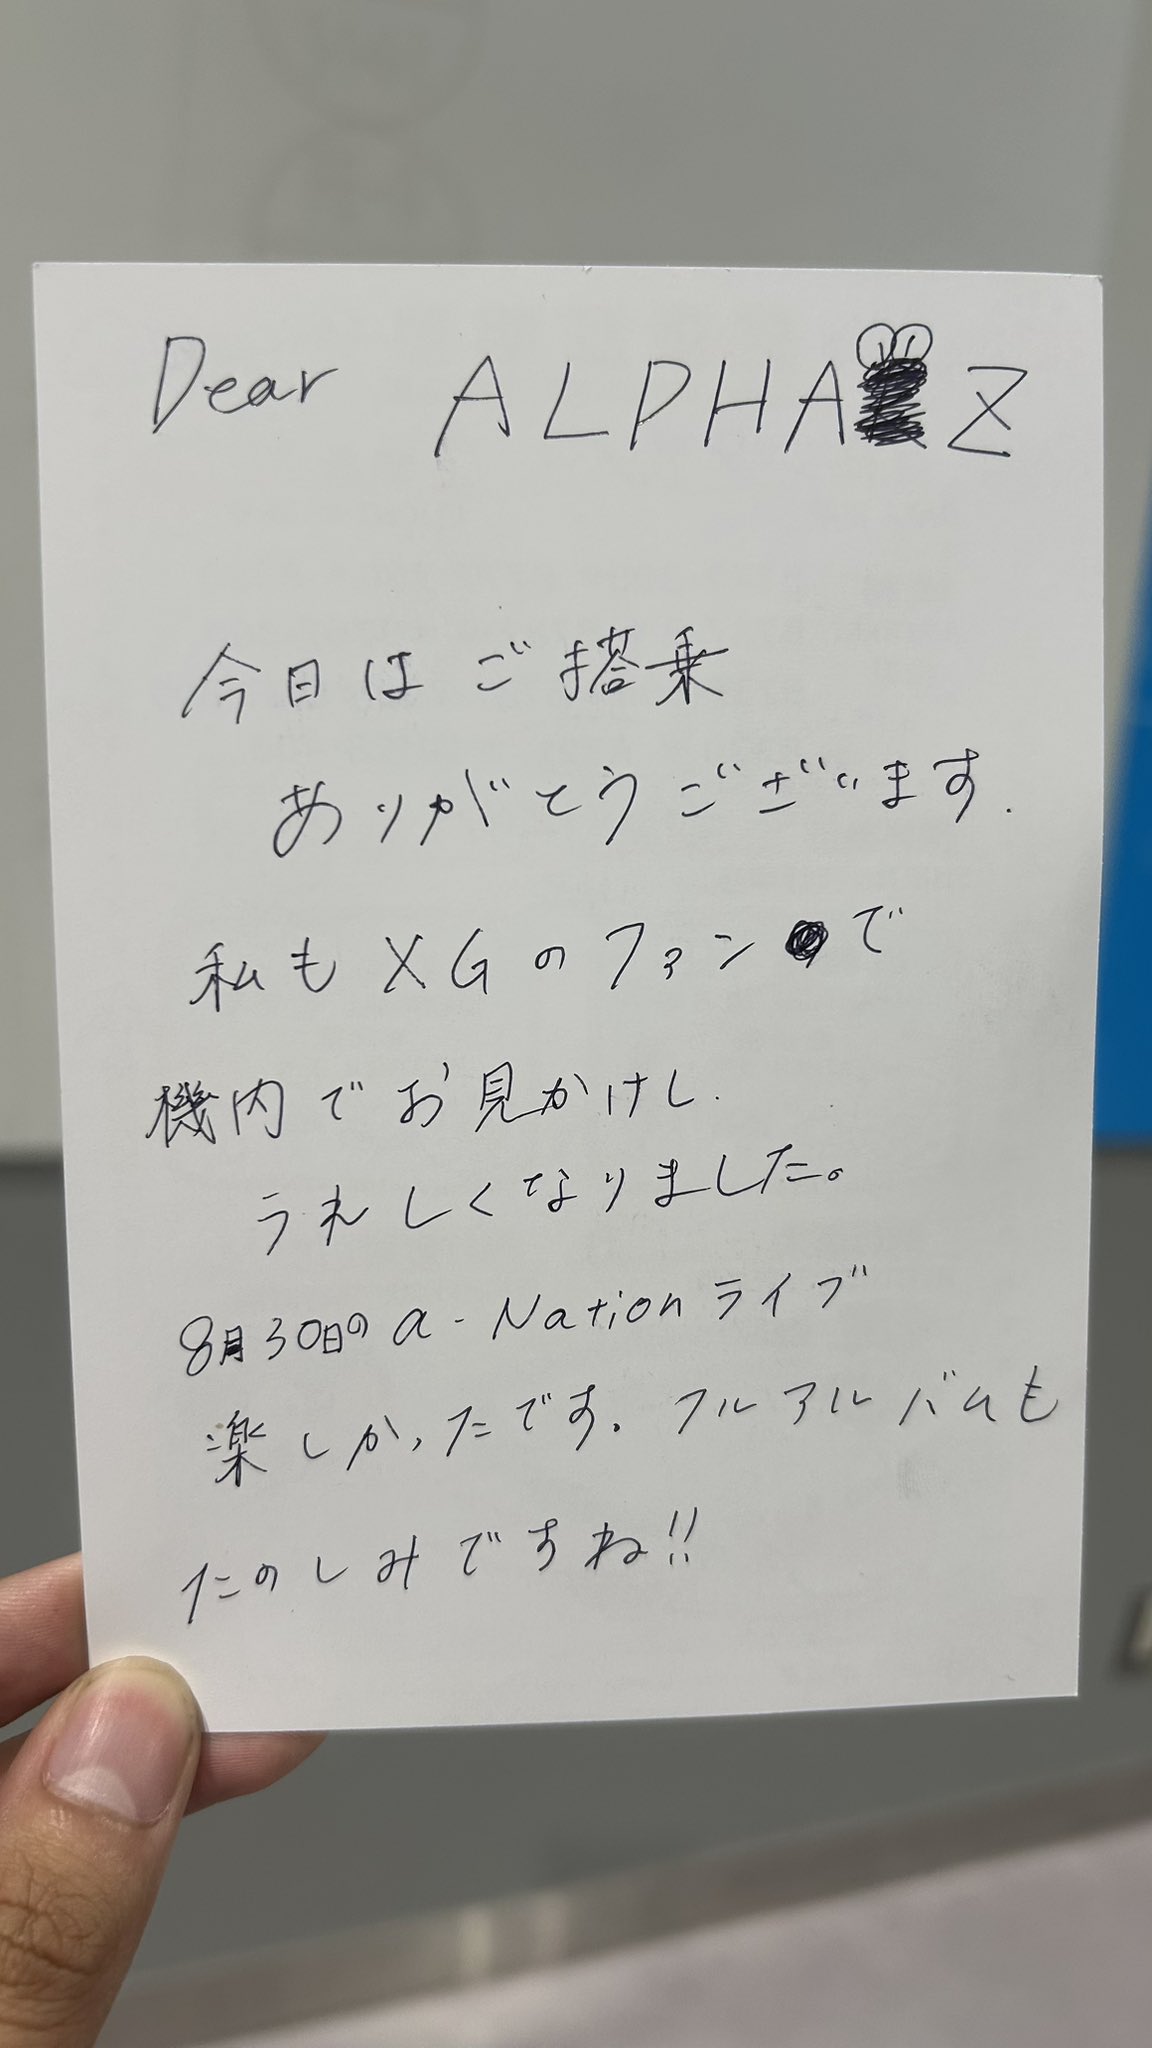 Dear ALPHA Z
今日はご搭乗
ありがとうございます.
私もXGのファンで
機内でお見かけし
うれしくなりました。
8月30日のa-Nationライブ
楽しかったです。フルアルバムも
たのしみですね!!